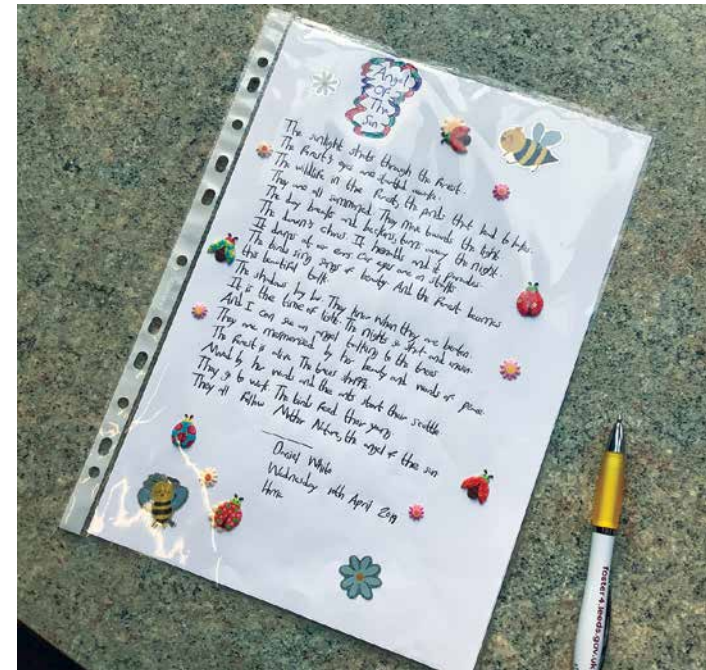 Angel
Of
The
Sun
The sunlight starts through the forest.
The forest's eyes are awake.
The wildlife in the forests, the that lead to lakes.
They are all summoned. They move towards the light.
The day breaks and beckons, turns away the night.
The dawn's chorus. It heralds and it parades
It at our ears. Our eyes are on
The birds sing songs of beauty. And the forest becomes
this beautiful
The shadows They know when they are beaten.
It is the time of light. The nights so and
And I can see an angel talking to the trees
They are mesmerised by her beauty and words of peace.
The forest is alive. The trees
Moved by her words and the ants start their scuttle
They go to work. The birds feed their young.
They all follow Mother Nature, the angel of the sun
Daniel White
Wednesday 10th April 2019
Home
foster4.leeds.gov.u